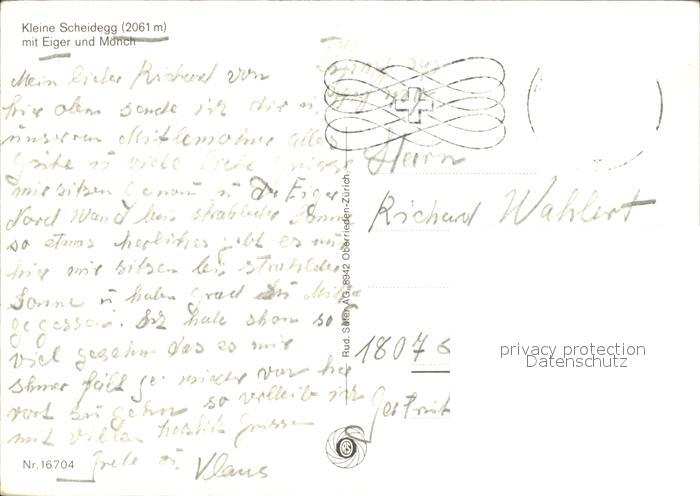 Kleine Scheidegg (2061 m)
mit Eiger und Mönch
Mein lieber Richard von
hir oben sende ich dir u.
unseren Mitbewohner alles
gute u viele liebe grüsse
mir sitzen genau u der Eiger
Nord Wand bei strahlender Sonne
so etwas herliches gibt es nur
hir mir sitzen bei strahlder
Sonne u haben grad zu Mittag
gegessen. Ich habe schon so
viel gesehn das es mir
schwer fält je wieder von hir
vort zu gehn so verbleib ich
mit vielen herzlich grüssen
Grete u. Klaus
Nr. 16704
Rud. Suter AG, 8942 Oberrieden-Zürich
Herrn
Richard Wahlert
1807
privacy protection
Datenschutz